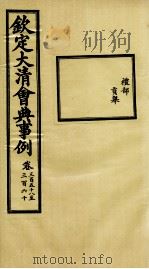 禮部
貢舉
欽定大清會典事例
卷三百五十八至
三百六十